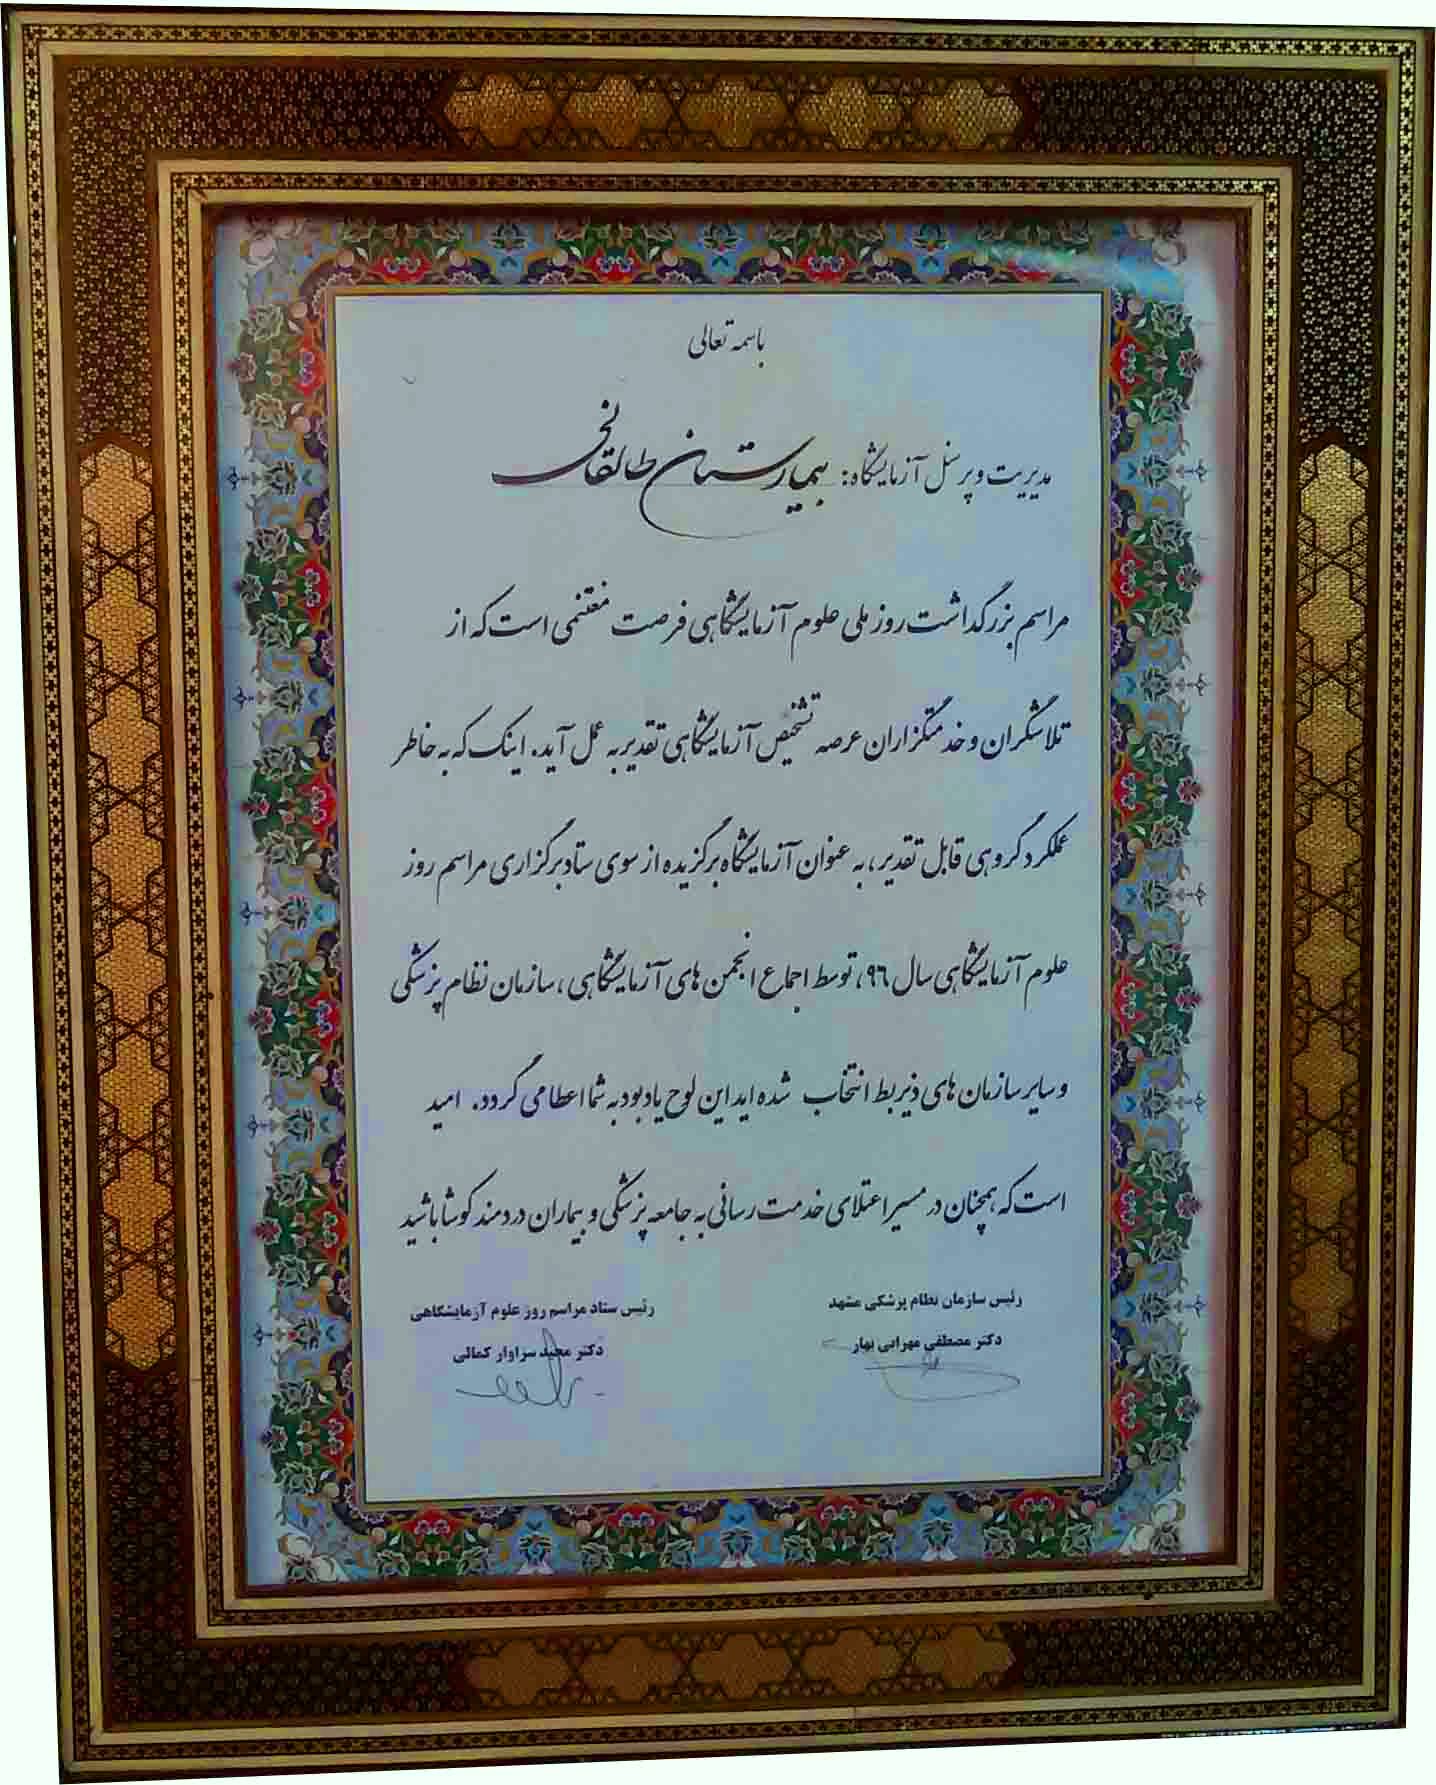 باسمه تعالی
مدیریت و پرسنل آزمایشگاه: بیمارستان طالقانی
مراسم بزرگداشت روز ملی علوم آزمایشگاهی فرصت مغتنمی است که از
تلاشگران و خدمتگزاران عرصه تشخیص آزمایشگاهی تقدیر به عمل آید. اینک که به خاطر
عملکرد گروهی قابل تقدیر، به عنوان آزمایشگاه برگزیده از سوی ستاد برگزاری مراسم روز
علوم آزمایشگاهی سال ۹۶، توسط اجماع انجمن های آزمایشگاهی، سازمان نظام پزشکی
و سایر سازمان های ذیربط انتخاب شده اید این لوح یادبود به شما اعطا می گردد. امید
است که همچنان در مسیر اعتلای خدمت رسانی به جامعه پزشکی و بیماران دردمند کوشا باشید
رئیس سازمان نظام پزشکی مشهد
دکتر مصطفی مهرابی بهار
رئیس ستاد مراسم روز علوم آزمایشگاهی
دکتر مجید سراوار کمالی